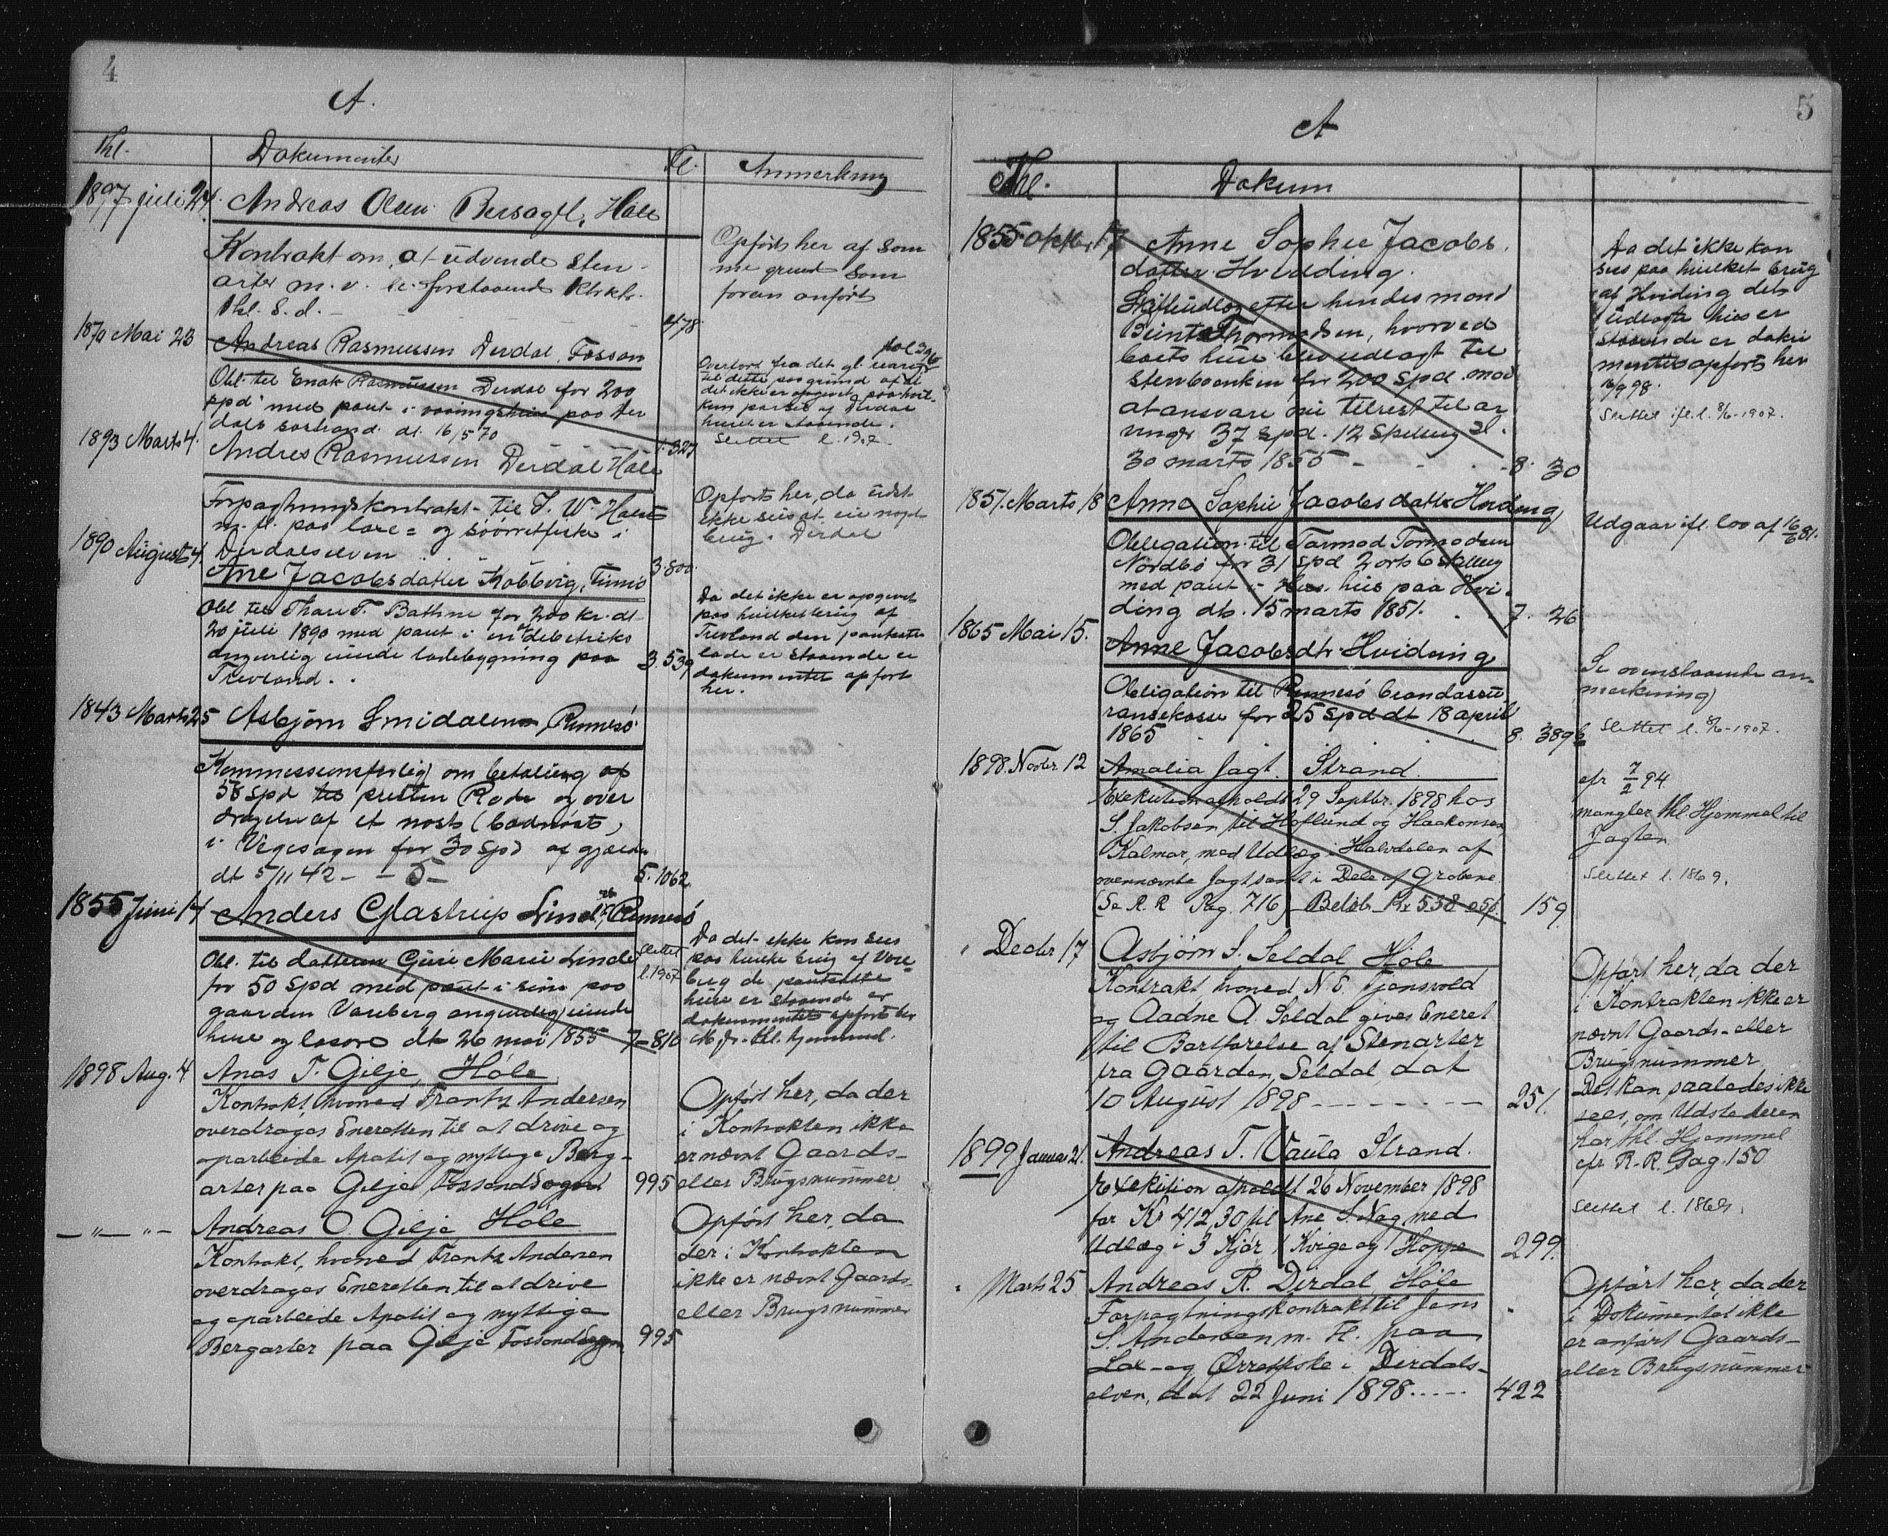 4
A.
Thl.
Dokumenter
Fl.
Anmerkning
1897 juli 24. Andreas Olsen Bersagel, Høle
Kontrakt om at udvende sten-
arter m. v. se forstaaende
Thl. S. d. 478
Opført her af sam
me grund som
foran anført
1870 Mai 23 Andreas Rasmussen Derdal, Fossan
Obl. til Enok Rasmussen Derdal for 200
spd med pant i vaaningshus paa Der
dals dt. 16/5 70 327
Overført fra det gl.
til dette paa grund af at
det ikke er opgivet paa hvil-
ken part af Derdal
huset er staaende.
Slettet l. 1907
1893 Marts 4. Andres Rasmussen Derdal Høle
Forpagtningskontrakt til J. W.
m. fl. paa laxe- og søørretfiske i
Derdalselven 3. 800
Opførts her, da udst
ikke sees at eie noget
brug i Derdal
1890 August 4. Ane Jacobsdatter Kobbvig, Finnø
Obl til Thore T. for 200 kr. dt
20 juli 1890 med pant i en
angivelig eiende ladebygning paa
Trevland. 3. 539
Da det ikke er opgivet
paa hvilket brug af
Trevland den pantsatte
lade er staaende er
dokumentet opført
her.
1843 Marts 25 Asbjørn Smidalen Rennesø
Kommissionsforlig om betaling af
58 spd til presten Rode og over
dragelse af et nøst (baadnøst)
i Vegesagen for 30 spd af gjælden
dt 5/11 42 – – 5 – 5. 1062
1855 Juni 14 Anders Glastrup Linde, Rennesø
Obl. til datteren Guri Marie Linde
for 50 spd med pant i sine paa
gaarden Vareberg angivelig eiende
huse og løsøre dt 26 mai 1855 7–810
Slettet
l. 1907
Da det ikke kan sees
paa hvilke brug af Vare-
berg de pantsatte
huse er staaende er
dokumentet opført her
M. fr. thl. hjemmel.
1898 Aug. 4 Anas T. Gilje, Høle
Kontrakt hvoved Frantz Andersen
overdrages Eneretten til at drive og
oparbeide Apatit og nyttige Berg-
arter paa Gilje Fossandsogn 995
Opført her, da der
i Kontrakten ikke
er nævnt Gaards-
eller Brugsnummer
— " — " — Andreas O. Gilje Høle
Kontrakt, hvoved Frantz Andersen
overdrages Eneretten til at drive
og oparbeide Apatit og nyttige
Bergarter paa Gilje Fossandsogn 995
Opført her, da
der i Kontrakten
ikke er nævnt Gaards-
eller Brugsnummer
5
A
Thl.
Dokum
1855 Oktbr. 17 Anne Sophie Jacobs
datter Hvidding.
Skifteudlæg efter hendes mand
Beint Thormodsen, hvorved
boets huse blev udlagt til
stervboenken for 200 spd. mod
at ansvare sine til ar
vinger 37 spd. 12 skilling dt.
30 marts 1855 – 8. 30
Da det ikke kan
sees paa hvilket brug
af Hviding det
udlagte hus er
staaende er doku
mentet opført her
Slettet ifl. l. 8/6-1907.
1851 Marts 18 Anne Sophie Jacobsdatter Hviding
Obligation til Tormod Tormodsen
Nordbø for 31 spd 2 ort 6 skilling
med pant i hus paa Hvi-
ding dt. 15 marts 1851. 7. 26
Udgaar ifl. lov af 16/6 81.
1865 Mai 15. Anne Jacobsdtr Hviding
Obligation til Rennesø brandassu
ransekasse for 25 spd dt 18 april
1865 8. 389 b
Se ovenstaaende an-
merkning
Slettet l. 8/6-1907.
1898. Novbr. 12 Amalia Jagt. Strand.
Exekution afholdt 29 Septbr. 1898 hos
S. Jakobsen til Høflund og Haakonsen
Kalmar, med Udlæg i Halvdelen af
ovennævnte Jagt samt i Dele af Grobene
(Se R. R. Pag. 716) Beløb Kr 538 05. 159.
cfr 7/2 94
mangler thl Hjemmel til
Jagten
Slettet l. 1869.
" Decbr 17 Asbjørn S. Seldal Høle
Kontrakt hvoved N. E. Tjensvold
og Aadne A. Seldal gives Eneret
til Bortførelse af Stenarter
fra Gaarden Seldal dat
10 August 1898 – – – – 251.
Opført her, da der
i Kontrakten ikke er
nævnt Gaards- eller
Brugsnummer
Det kan saaledes ikke
sees, om Udstederen
har thl Hjemmel
cfr R. R. Pag. 150
1899 Januar 21. Andreas T. Vaula Strand.
Exekution afholdt 26 November 1898
for Kr 412,30 til Ane S. Nag med
Udlæg i 3 Kjør 1 Kvige og 1 Hoppe 299.
Slettet l. 1869.
" Marts 25 Andreas R. Dirdal Høle
Forpagtningskontrakt til Jens
S. Andersen m. Fl. paa
Lax- og Ørretfiske i Dirdals-
elven, dat 22 Juni 1898 ..... 422
Opført her, da der
i Dokumentet ikke
er anført Gaards-
eller Brugsnummer